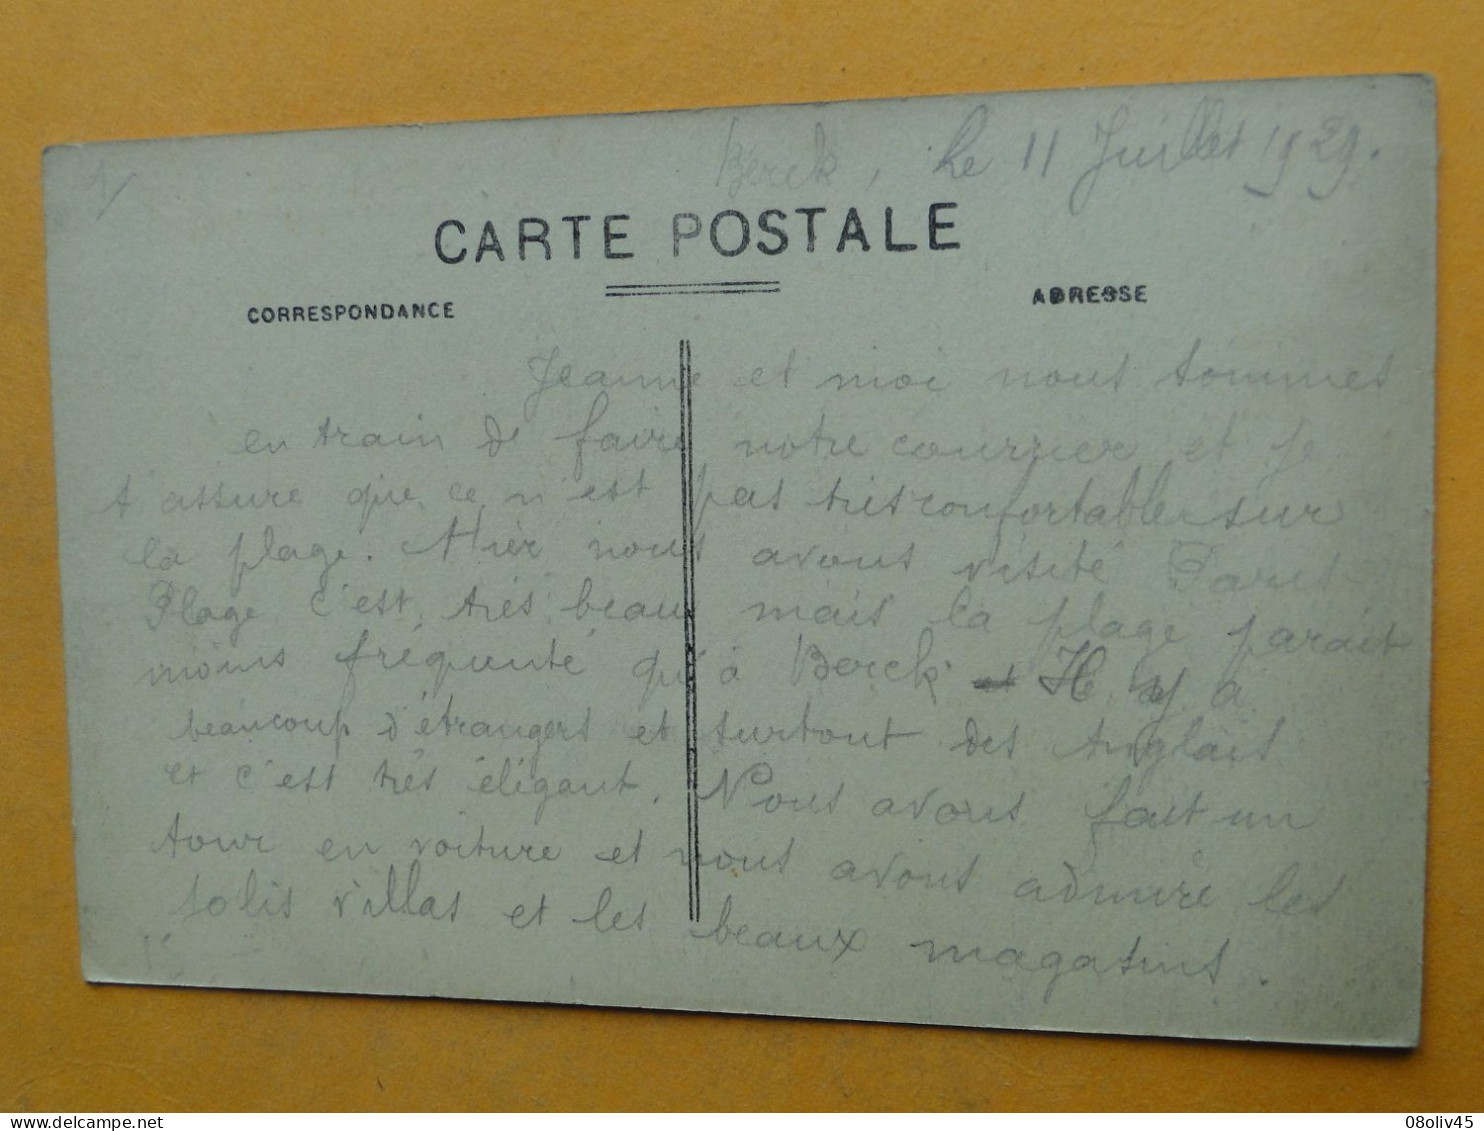 1/
Berck, Le 11 Juillet 1929.
CARTE POSTALE
CORRESPONDANCE
ADRESSE
Jeanne et moi nous sommes
en train de faire notre courrier et je
t'assure que ce n'est pas très confortable sur
la plage. Hier nous avons visité Paris-
Plage c'est très beau mais la plage parait
moins fréquenté qu'à Berck - Il y a
beaucoup d'étrangers et surtout des Anglais
et c'est très élégant. Nous avons fait un
tour en voiture et nous avons admiré les
jolis villas et les beaux magasins.
08oliv45